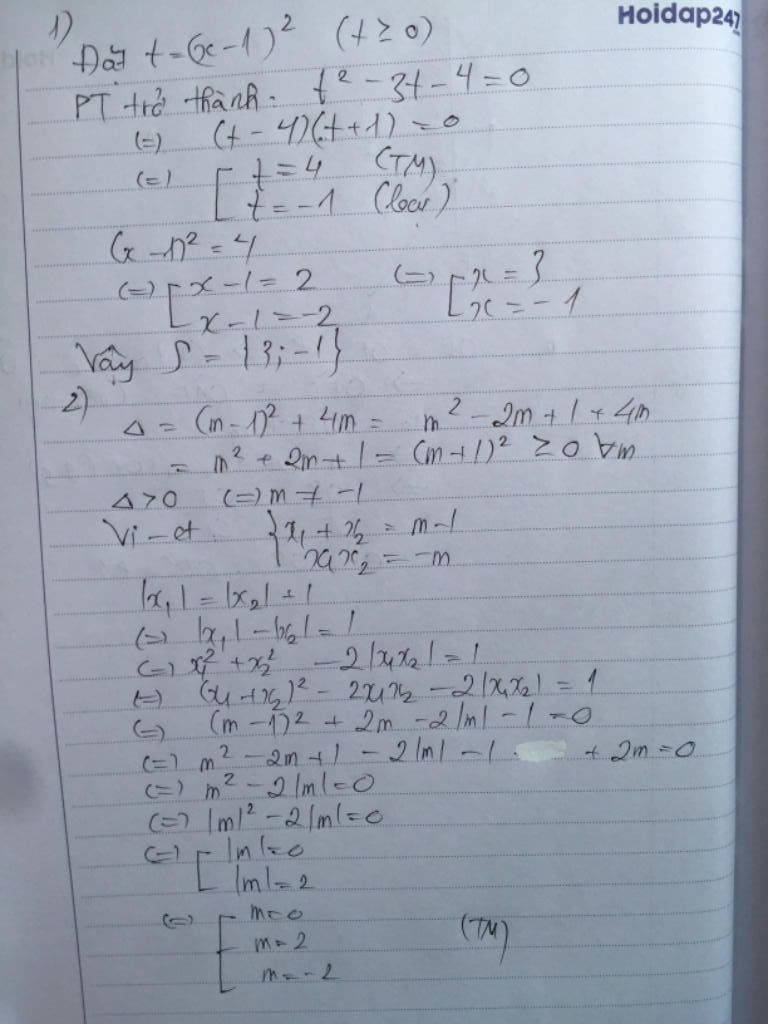 Hoidap247
1)
Đặt t = (x - 1)² (t ≥ 0)
PT trở thành. t² - 3t - 4 = 0
(=) (t - 4)(t + 1) = 0
(=) [ t = 4 (TM)
t = -1 (loại)
(x - 1)² = 4
(=) [ x - 1 = 2 (=) [ x = 3
x - 1 = -2 x = -1
Vậy S = {3; -1}
2)
Δ = (m - 1)² + 4m = m² - 2m + 1 + 4m
= m² + 2m + 1 = (m + 1)² ≥ 0 ∀m
Δ > 0 (=) m ≠ -1
Vi-et { x₁ + x₂ = m - 1
x₁x₂ = -m
|x₁| = |x₂| + 1
(=) |x₁| - |x₂| = 1
(=) x₁² + x₂² - 2|x₁x₂| = 1
(=) (x₁ + x₂)² - 2x₁x₂ - 2|x₁x₂| = 1
(=) (m - 1)² + 2m - 2|m| - 1 = 0
(=) m² - 2m + 1 - 2|m| - 1 + 2m = 0
(=) m² - 2|m| = 0
(=) |m|² - 2|m| = 0
(=) [ |m| = 0
|m| = 2
(=) [ m = 0
m = 2 (TM)
m = -2